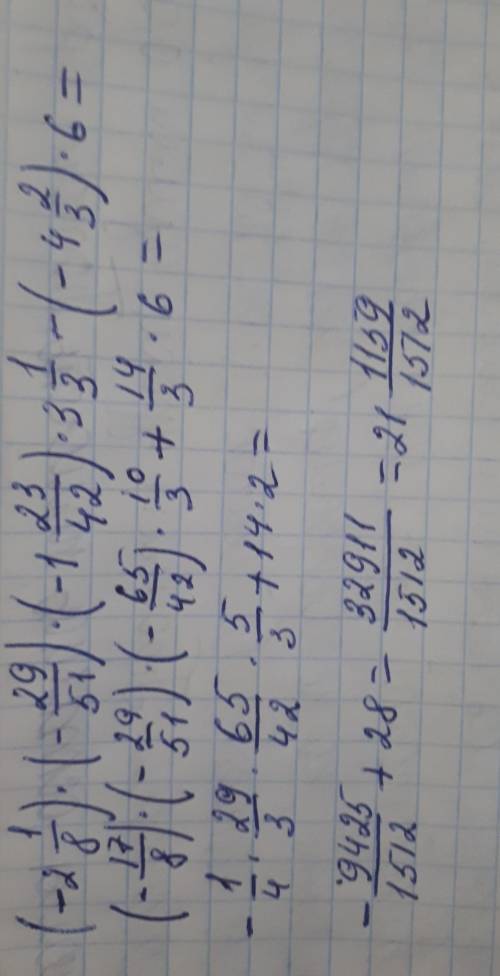 (-2 1/8) · (- 29/51) · (-1 23/42) · 3 1/3 - (-4 2/3) · 6 =
(- 17/8) · (- 29/51) · (- 65/42) · 10/3 + 14/3 · 6 =
- 1/4 · 29/3 · 65/42 · 5/3 + 14 · 2 =
- 9425/1512 + 28 = 32911/1512 = 21 1159/1512